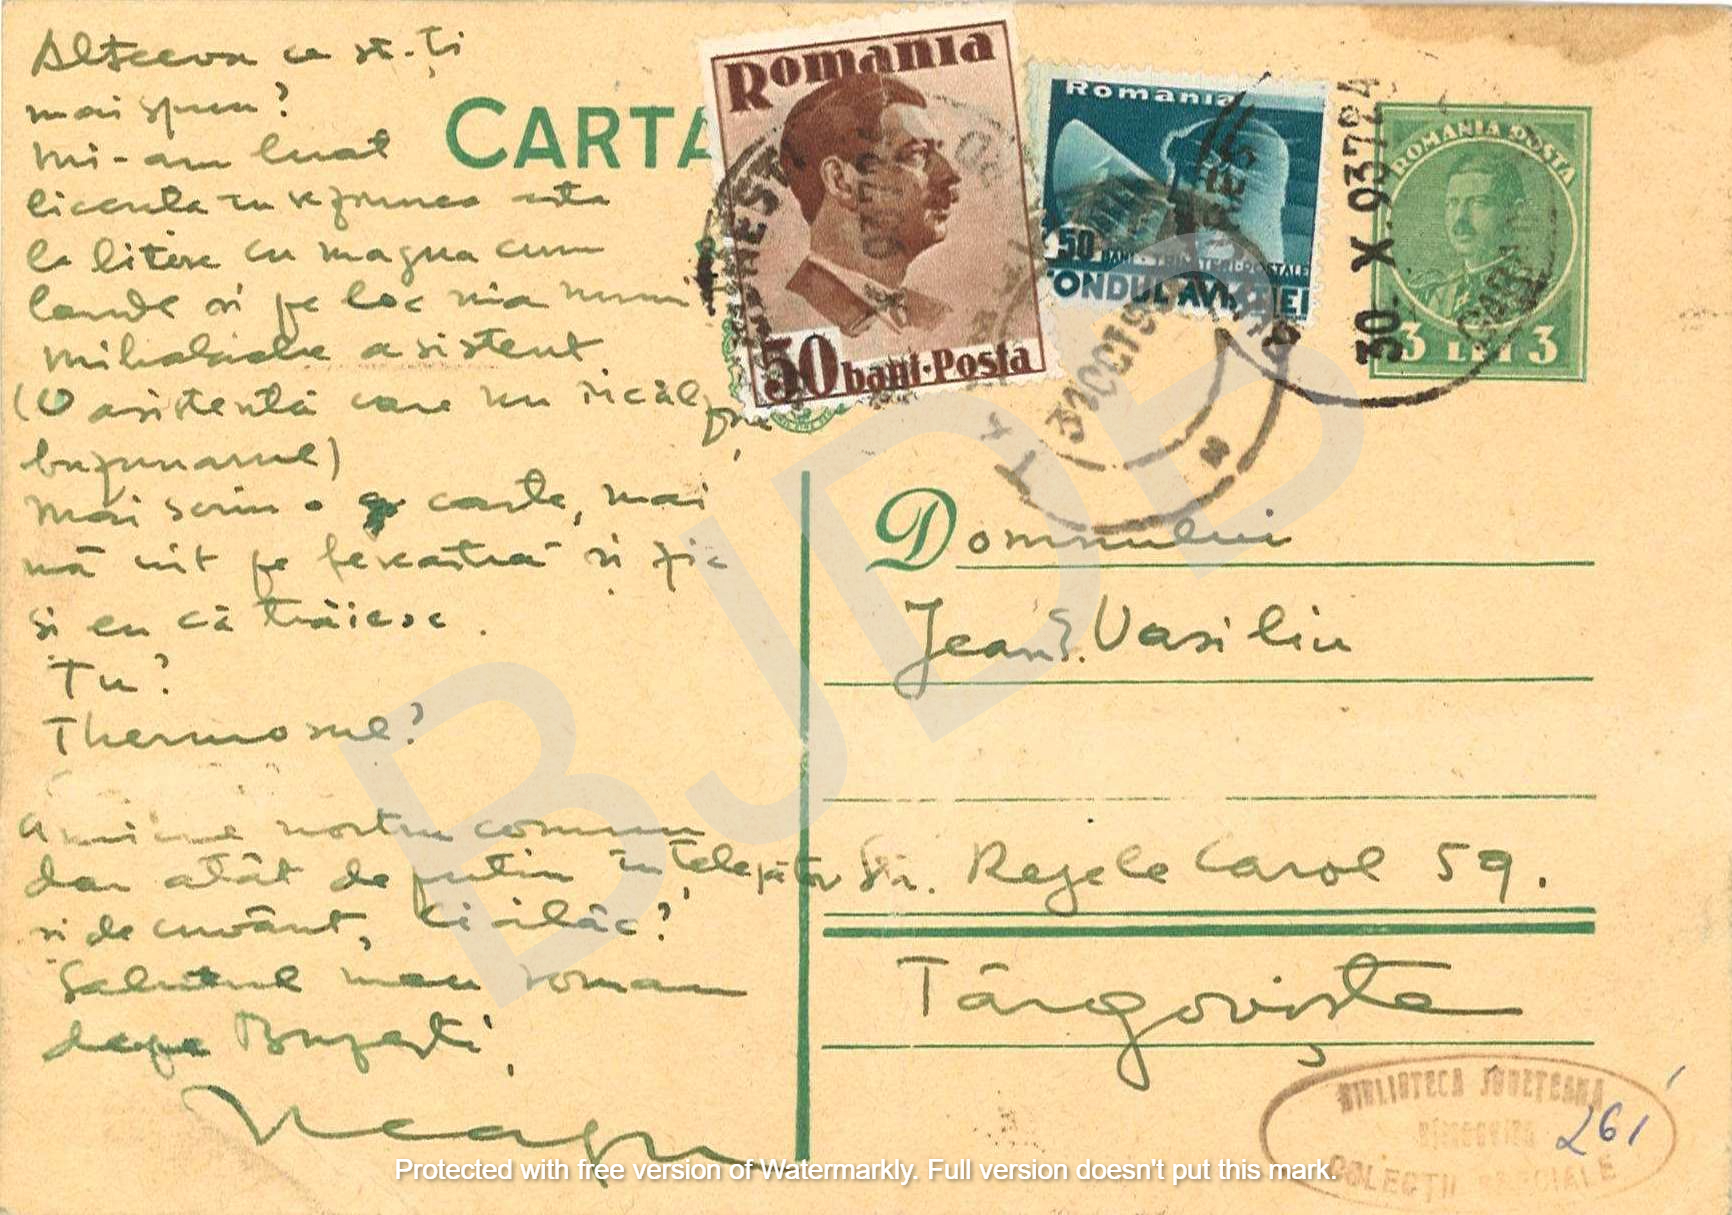 Altceva ce să-ți
mai spun?
Mi-am luat
licența în vezinea asta
la litere cu magna cum
laude și pe loc m-a numi
Mihalache asistent
(O asistență care nu încălzește
buzunarul)
Mai scriu o carte, mai
mă uit pe fereastră și zic
și eu că trăiesc.
Tu?
Thermosul?
Amicul nostru comun
dar atât de puțin înțelegător
și de cuvânt,
Salutul meu roman
depe Buzești,
Neagu
CARTA
Romania
50 bani·Posta
Romania
50 BANI
FONDUL AVIAȚIEI
ROMANIA POSTA
3 LEI 3
30 X 937 24
31 OCT 9
Domnului
Jean S. Vasiliu
Str. Regele Carol 59.
Târgoviște
BIBLIOTECA JUDEȚEANA
DIMBOVIȚA
COLECȚII SPECIALE
261
BJDB
Protected with free version of Watermarkly. Full version doesn't put this mark.